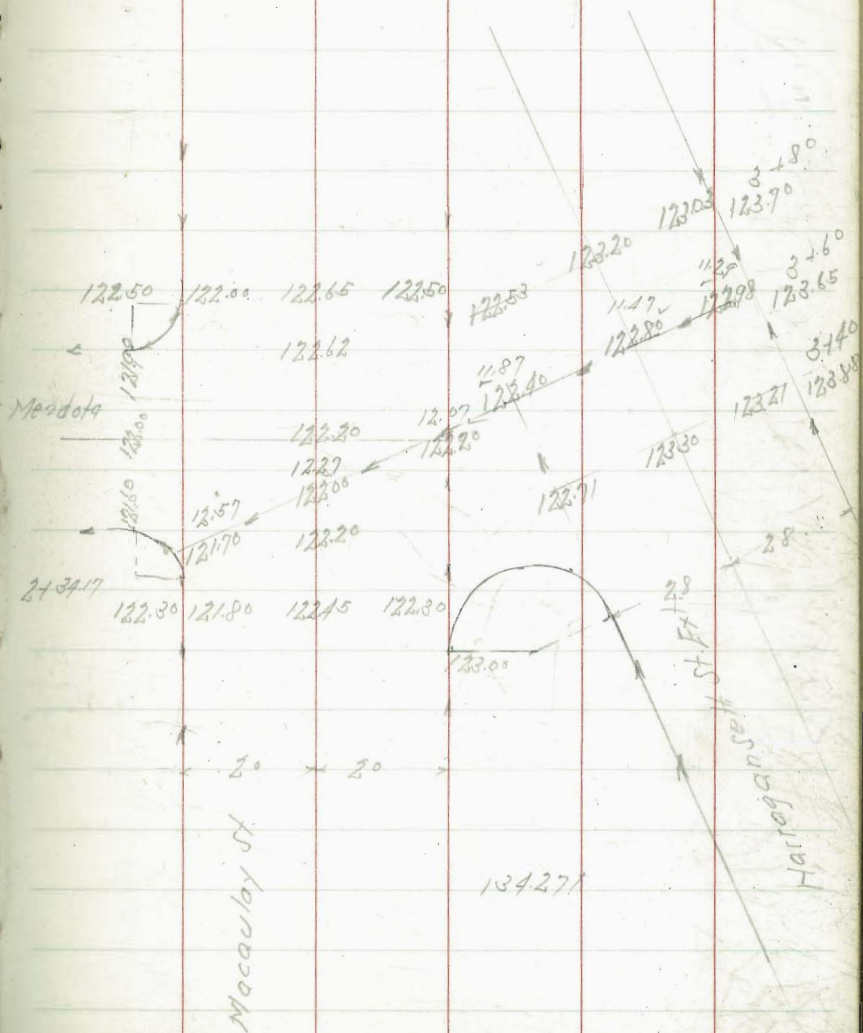 3+80
123.03 123.70
123.20
3+60
11.29
122.98 123.65
122.50 122.00 122.65 122.50 122.53
11.47
122.80
3+40
123.88
122.62
11.87
122.40
123.21
Mendota
122.00
12.07
122.20
122.20
123.30
12.27
122.00
122.71
12.57
121.70
122.20
28
2+34.17
122.30 121.80 122.45 122.30
28
123.00
20 20
Macaulay St.
134.271
St. Ext.